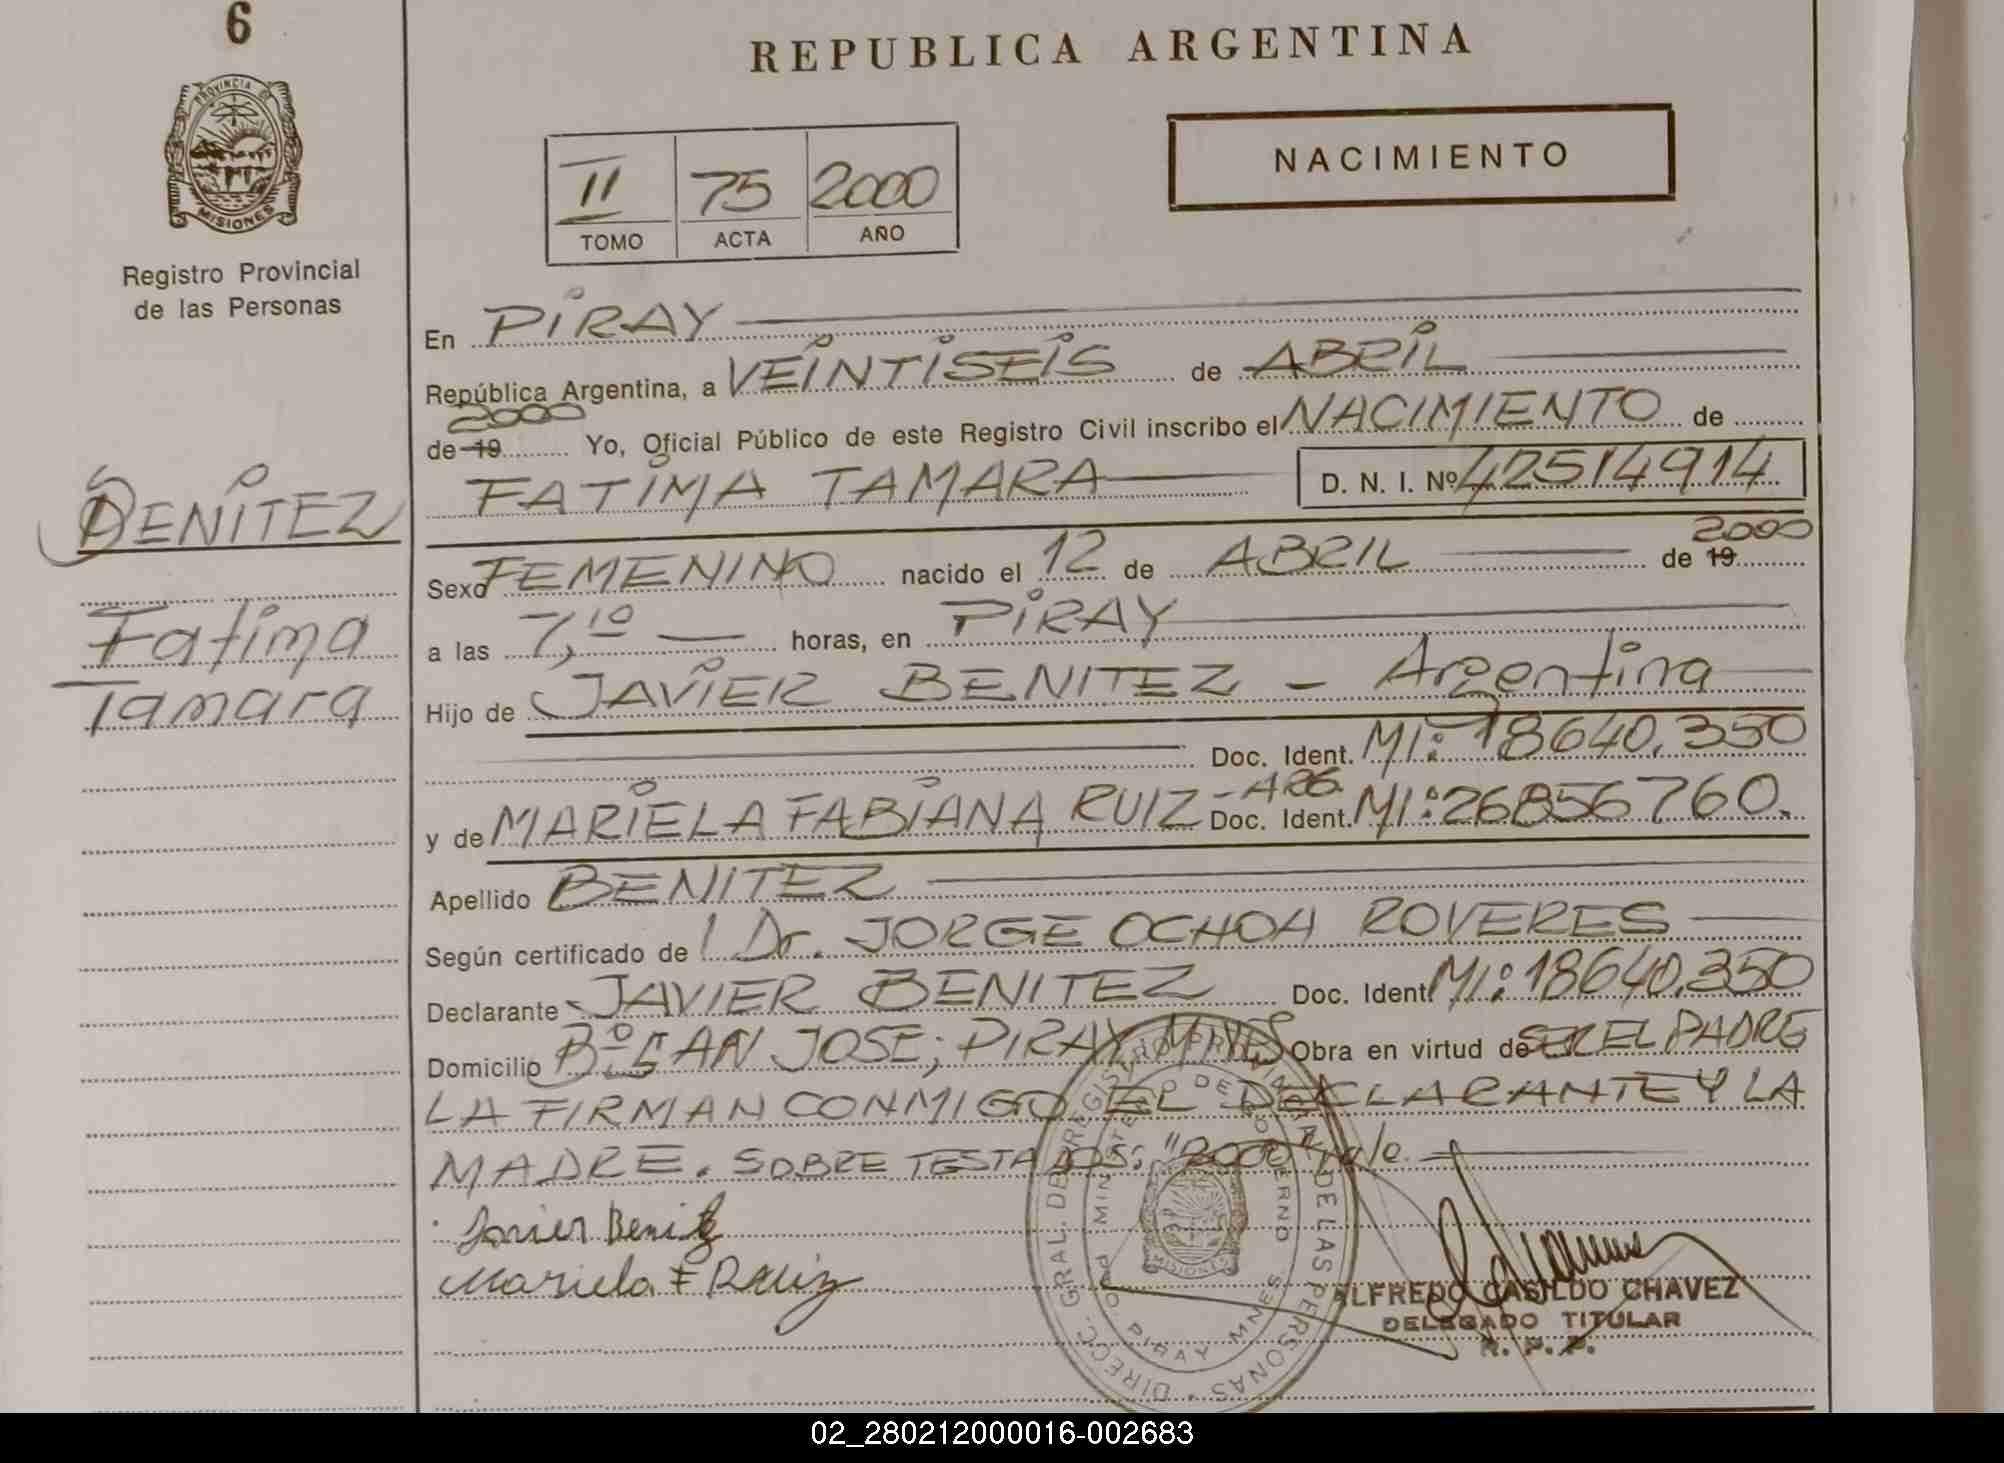 6
PROVINCIA DE
MISIONES
Registro Provincial
de las Personas
BENITEZ
Fatima
Tamara
REPUBLICA ARGENTINA
II 75 2000
TOMO ACTA AÑO
NACIMIENTO
En PIRAY
República Argentina, a VEINTISEIS de ABRIL
2000
de 19 Yo, Oficial Público de este Registro Civil inscribo el NACIMIENTO de
FATIMA TAMARA D. N. I. Nº 42514914
2000
Sexo FEMENINO nacido el 12 de ABRIL de 19
a las 7,10 horas, en PIRAY
Hijo de JAVIER BENITEZ - Argentina
Doc. Ident. MI: 18640.350
y de MARIELA FABIANA RUIZ - ARG. Doc. Ident. MI: 26856760.
Apellido BENITEZ
Según certificado de Dr. JORGE OCHOA ROVERES
Declarante JAVIER BENITEZ Doc. Ident. MI: 18640.350
Domicilio Bº SAN JOSE; PIRAY MNES Obra en virtud de SER EL PADRE
LA FIRMAN CONMIGO EL DECLARANTE Y LA
MADRE. SOBRE TESTADOS: "2000" Vale
Javier Benitez
Mariela F Ruiz
DIRECC. GRAL. DE REGISTRO PROVINCIAL DE LAS PERSONAS
MINISTERIO DE GOBIERNO
MISIONES
PIRAY MNES
ALFREDO CASILDO CHAVEZ
DELEGADO TITULAR
R. P. P.
02_280212000016-002683